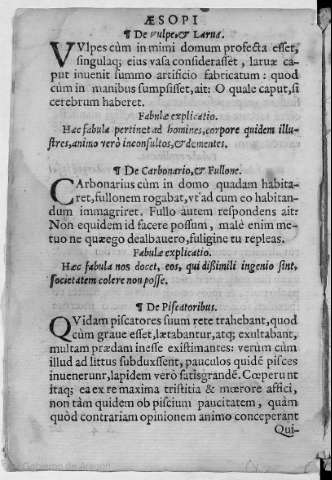 ÆSOPI
¶ De Vulpe, & Larua.
VVlpes cùm in mimi domum profecta esset,
singulaq; eius vasa considerasset, laruæ ca-
put inuenit summo artificio fabricatum: quod
cùm in manibus sumpsisset, ait: O quale caput, si
cerebrum haberet.
Fabulæ explicatio.
Hæc fabula pertinet ad homines, corpore quidem illu-
stres, animo verò inconsultos, & dementes.
¶ De Carbonario, & Fullone.
CArbonarius cùm in domo quadam habita-
ret, fullonem rogabat, vt ad cum eo habitan-
dum immagriret. Fullo autem respondens ait:
Non equidem id facere possum, malè enim me-
tuo ne quæ ego dealbauero, fuligine tu repleas.
Fabulæ explicatio.
Hæc fabula nos docet, eos, qui dissimili ingenio sint,
societatem colere non posse.
¶ De Piscatoribus.
QVidam piscatores suum rete trahebant, quod
cùm graue esset, lætabantur, atq; exultabant,
multam prædam inesse existimantes: verum cùm
illud ad littus subduxssent, pauculos quidē pisces
inuenerunr, lapidem verò satis grandē. Cœperunt
itaq; ea ex re maxima tristitia & mœrore affici,
non tàm quidem ob piscium paucitatem, quàm
quòd contrariam opinionem animo conceperant
Qui-